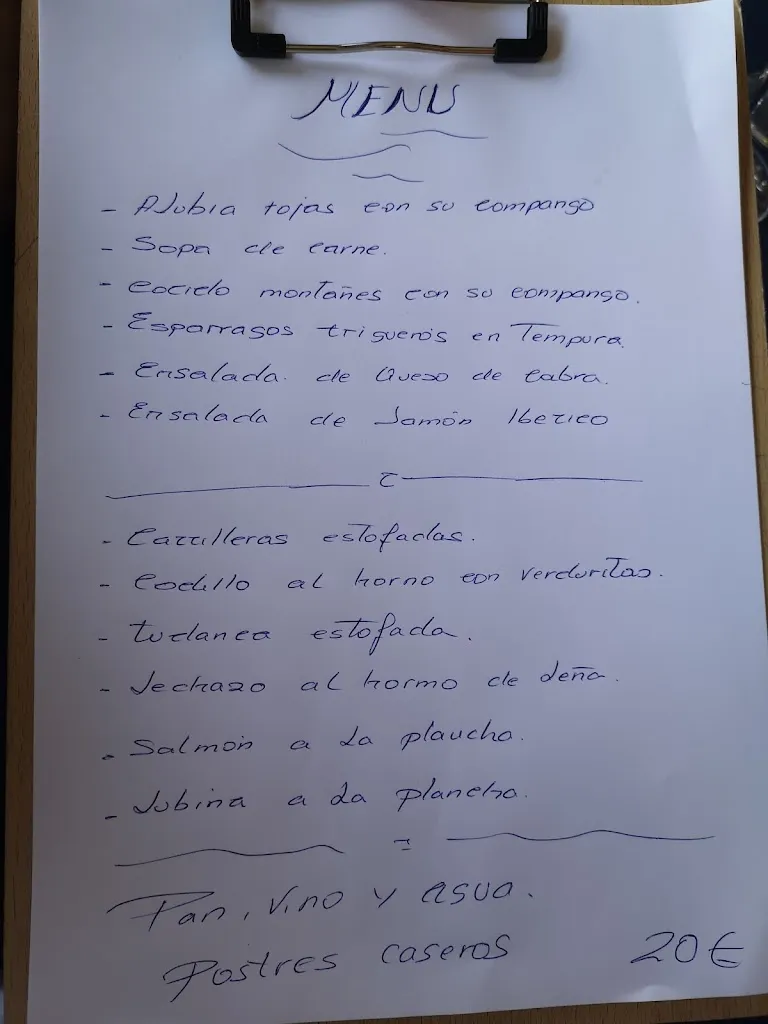 MENU
- Alubia rojas con su compango
- Sopa de carne.
- Cocido montañes con su compango.
- Esparragos trigueros en Tempura.
- Ensalada de Queso de Cabra.
- Ensalada de Jamón Iberico
- Carrilleras estofadas.
- Codillo al horno con verduritas.
- tudanca estofada.
- lechazo al horno de leña.
- Salmon a la plancha.
- lubina a la plancha.
Pan, vino y agua.
Postres caseros 20€